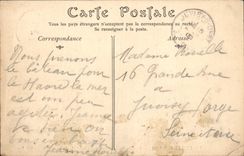 Carte Postale
Tous les pays étrangers n'acceptent pas la correspondance au recto
Se renseigner à la poste
Correspondance
Adresse
Nous prenons
le bateau pour
le Havre la mer
est un peu
Jeanne
va bien on
vous
Madame
16 Grande Rue
à
Juvisy s/ Orge
Seine et Oise